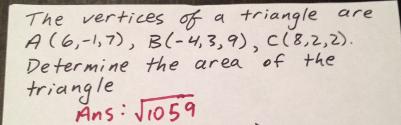 The vertices of a triangle are
A(6,-1,7), B(-4,3,9), C(8,2,2).
Determine the area of the
triangle
Ans: √1059